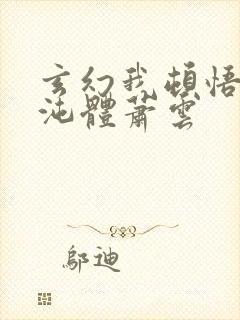 玄幻我頓悟
沌體蕭雲
鄔迪